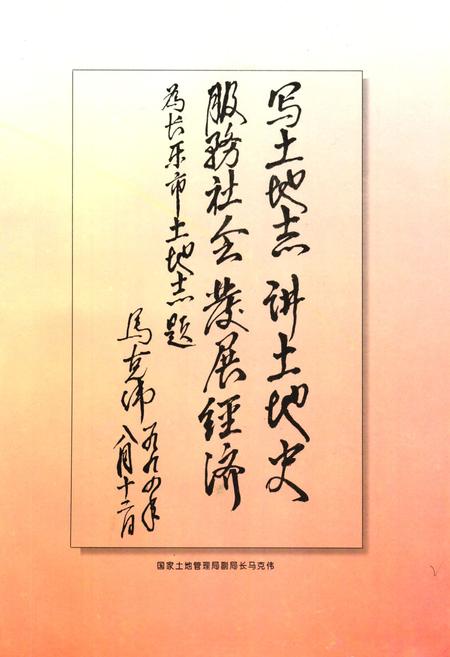 写土地志 讲土地史
服務社会 發展經济
為长乐市土地志题
馬克伟 一九九四年
八月十二日
国家土地管理局副局长马克伟